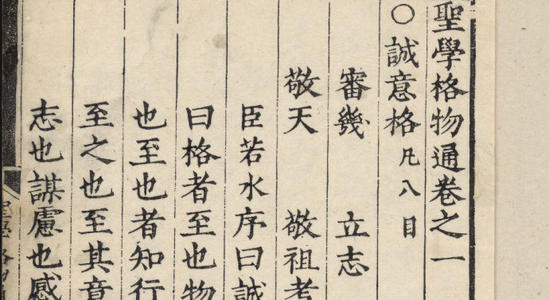 聖學格物通卷之一
○誠意格凡八目
審幾 立志
敬天 敬祖考
臣若水序曰誠
曰格者至也物
也至也者知行
至之也至其意
志也謀慮也感